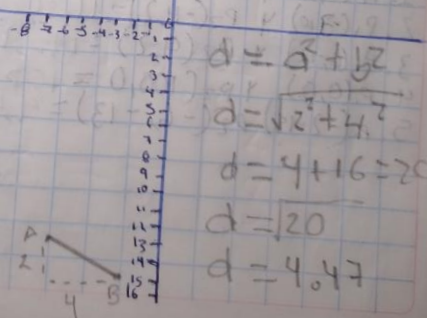 -8 -7 -6 -5 -4 -3 -2 -1
1
2
3
4
5
6
7
8
9
10
11
12
13
14
15
16
A
2
4
B
d = a² + b²
d = √2² + 4²
d = 4 + 16 = 20
d = √20
d = 4.47